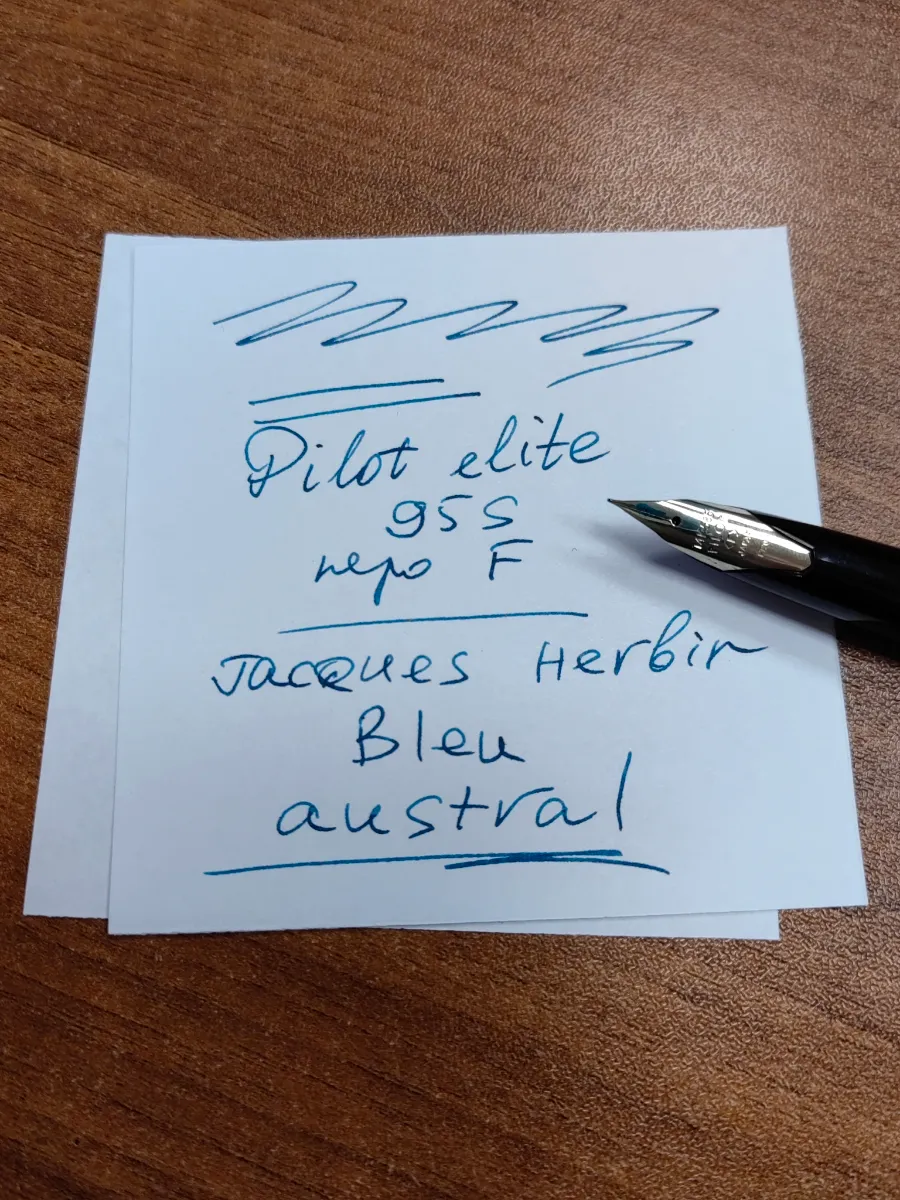 Pilot elite
95S
перо F
Jacques Herbin
Bleu
austral